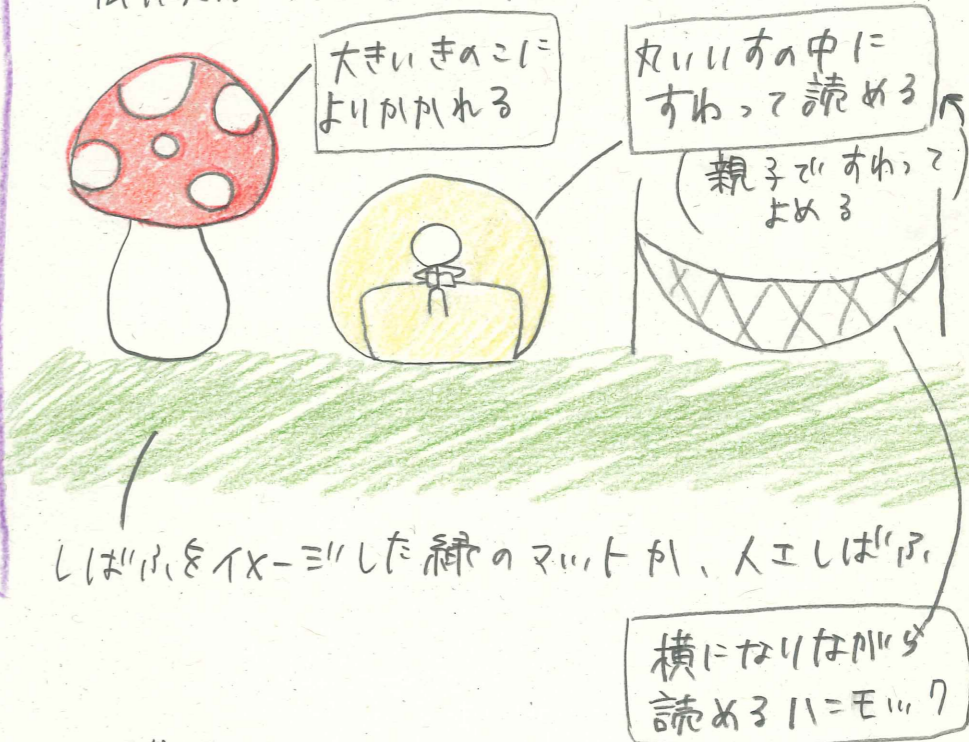 大きいきのこに
よりかかれる
丸いいすの中に
すわって読める
(親子ですわって
よめる)
しばふをイメージした緑のマットか、人工しばふ
横になりながら
読めるハンモック